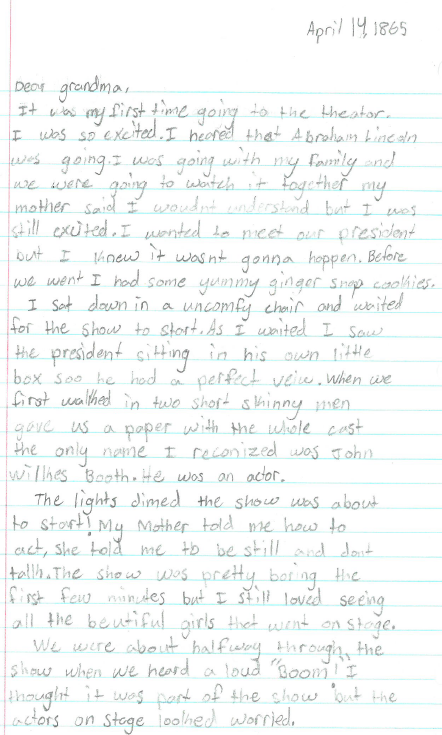 April 14, 1865
Dear grandma,
It was my first time going to the theator.
I was so excited. I heared that Abraham Lincoln
was going. I was going with my family and
we were going to watch it together my
mother said I wouldnt understand but I was
still excited. I wanted to meet our president
but I knew it wasnt gonna happen. Before
we went I had some yummy ginger snap cookies.
I sat down in a uncomfy chair and waited
for the show to start. As I waited I saw
the president sitting in his own little
box soo he had a perfect veiw. When we
first walked in two short skinny men
gave us a paper with the whole cast
the only name I reconized was John
Willkes Booth. He was an actor.
The lights dimed the show was about
to start! My Mother told me how to
act, she told me to be still and dont
talk. The show was pretty boring the
first few minutes but I still loved seeing
all the beutiful girls that went on stage.
We were about halfway through the
show when we heard a loud "Boom!" I
thought it was part of the show but the
actors on stage looked worried.